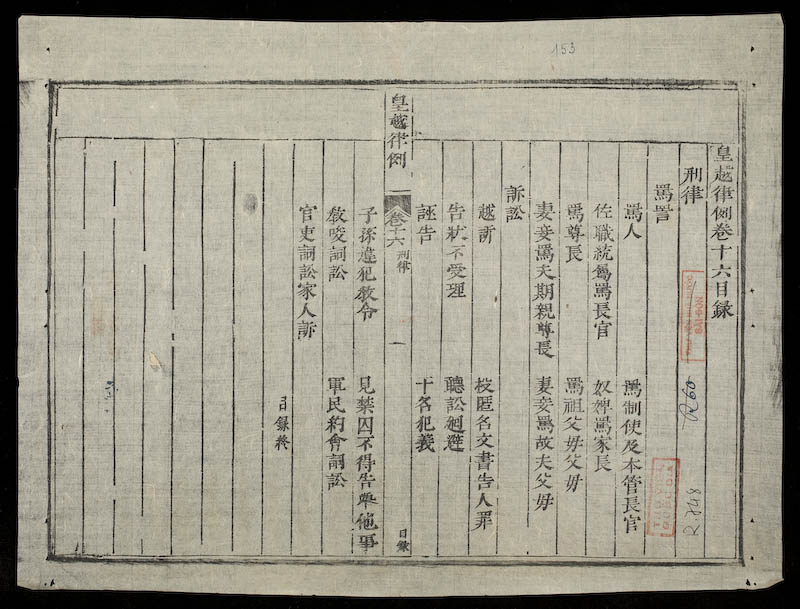 153
皇越律例卷十六目録
刑律
罵詈
罵人　罵制使及本管長官
佐職統屬罵長官　奴婢罵家長
罵尊長　罵祖父母父母
妻妾罵夫期親尊長　妻妾罵故夫父母
訴訟
越訴　投匿名文書告人罪
告狀不受理　聽訟廻避
誣告　干名犯義
皇越律例
卷十六 刑律 一 目録
子孫違犯教令　見禁囚不得告舉他事
教唆詞訟　軍民約會詞訟
官吏詞訟家人訴
目録終
R 748